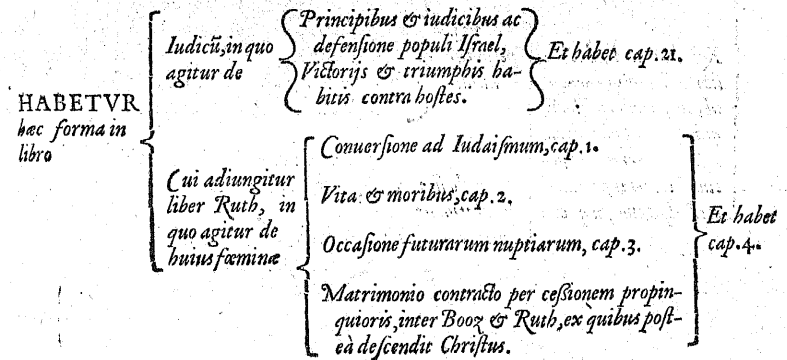 HABETVR
hæc forma in
libro
Iudicũ, in quo
agitur de
Principibus & iudicibus ac
defensione populi Israel,
Victorijs & triumphis ha-
bitis contra hostes.
Et habet cap. 21.
Cui adiungitur
liber Ruth, in
quo agitur de
huius fœminæ
Conuersione ad Iudaismum, cap. 1.
Vita & moribus, cap. 2.
Occasione futurarum nuptiarum, cap. 3.
Matrimonio contracto per cessionem propin-
quioris, inter Booz & Ruth, ex quibus post-
eà descendit Christus.
Et habet
cap. 4.